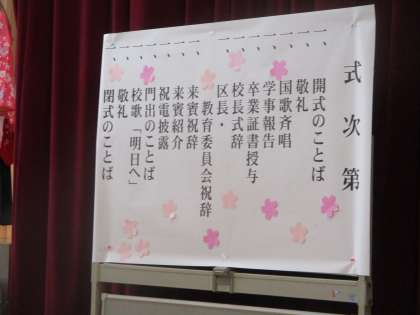 式次第
一、開式のことば
一、敬礼
一、国歌斉唱
一、学事報告
一、卒業証書授与
一、校長式辞
一、区長・教育委員会祝辞
一、来賓祝辞
一、来賓紹介
一、祝電披露
一、門出のことば
一、校歌「明日へ」
一、敬礼
一、閉式のことば